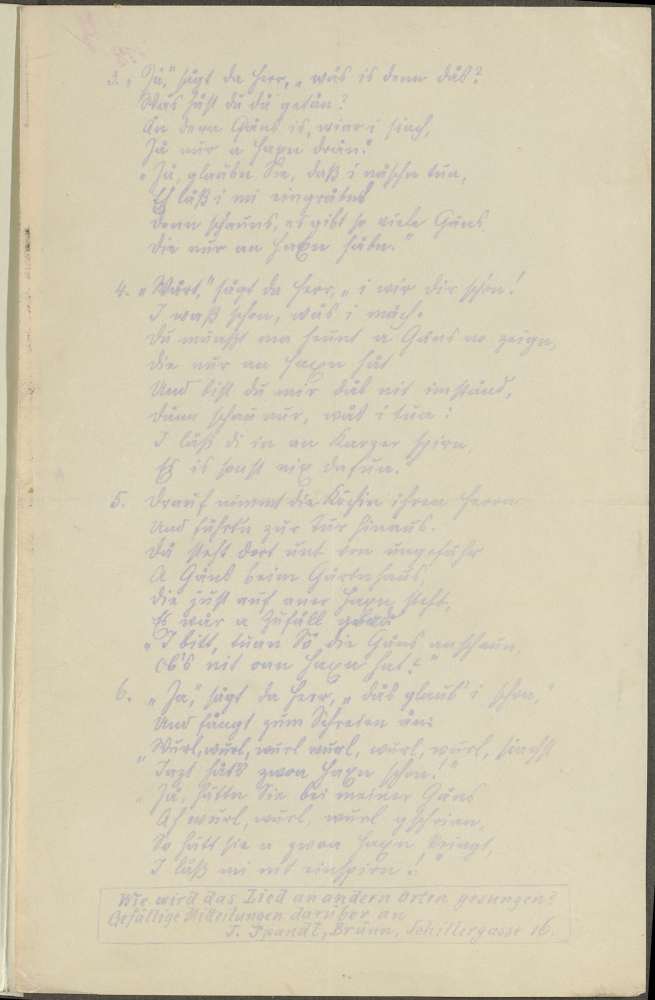 3. „Ja," sagt da Herr, „was is denn dås?
Wås håst du då getån?
An dera Gåns is, wiar i siach,
Jå nur a Haxn drån."
„Jå, glauben Sie, daß i nåschn tua,
I låß mi eingråbn!
Denn schauns, es gibt so viele Gäns
Die nur an Haxen håbn."
4. „Wårt," sågt da Herr, „i wir dir schon!
I waß schon, wås i måch.
Du muaßt ma heunt a Gåns no zeign,
Die nur an Haxn håt
Und bist du mir dås nit imstånd,
Dånn schau nur, wås i tua:
I låß di in an Karzer spirn,
Es is sonst nix dafua."
5. Drauf nimmt die Köchin ihren Herrn
Und führtn zur Tür hinaus.
Då steht dort unt von ungefähr
A Gåns beim Gårtnhaus,
Die just auf aner Haxn steht,
Es wår a Zufåll
„I bitt, tuan Sö die Gåns anschaun,
Ob's nit oan Haxn hat?"
6. „Ja," sågt da Herr, „dås glaub i schon,"
Und fångt zum Schreien ån:
„Wurl, wurl, wurl wurl, wurl, wurl, siachst
Jazt håts zwoa Haxn schon!"
„Jå, hättn Sie bei meiner Gåns
Ah wurl, wurl, wurl gschrian,
So hätt sie a zwoa Haxn kriagt,
I låß mi nit einspirn!"
Wie wird das Lied an andern Orten gesungen?
Gefällige Mitteilungen darüber an
J. Pfandl, Brünn, Schillergasse 16.